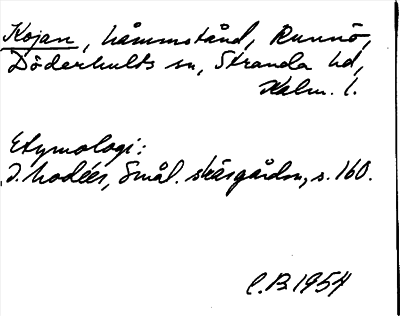 Kojan, håmmstånd, Runnö,
Döderhults sn, Stranda hd,
Kalm. l.
Etymologi:
I. Modéer, Smål. skärgårdsn, s. 160.
C.B. 1954